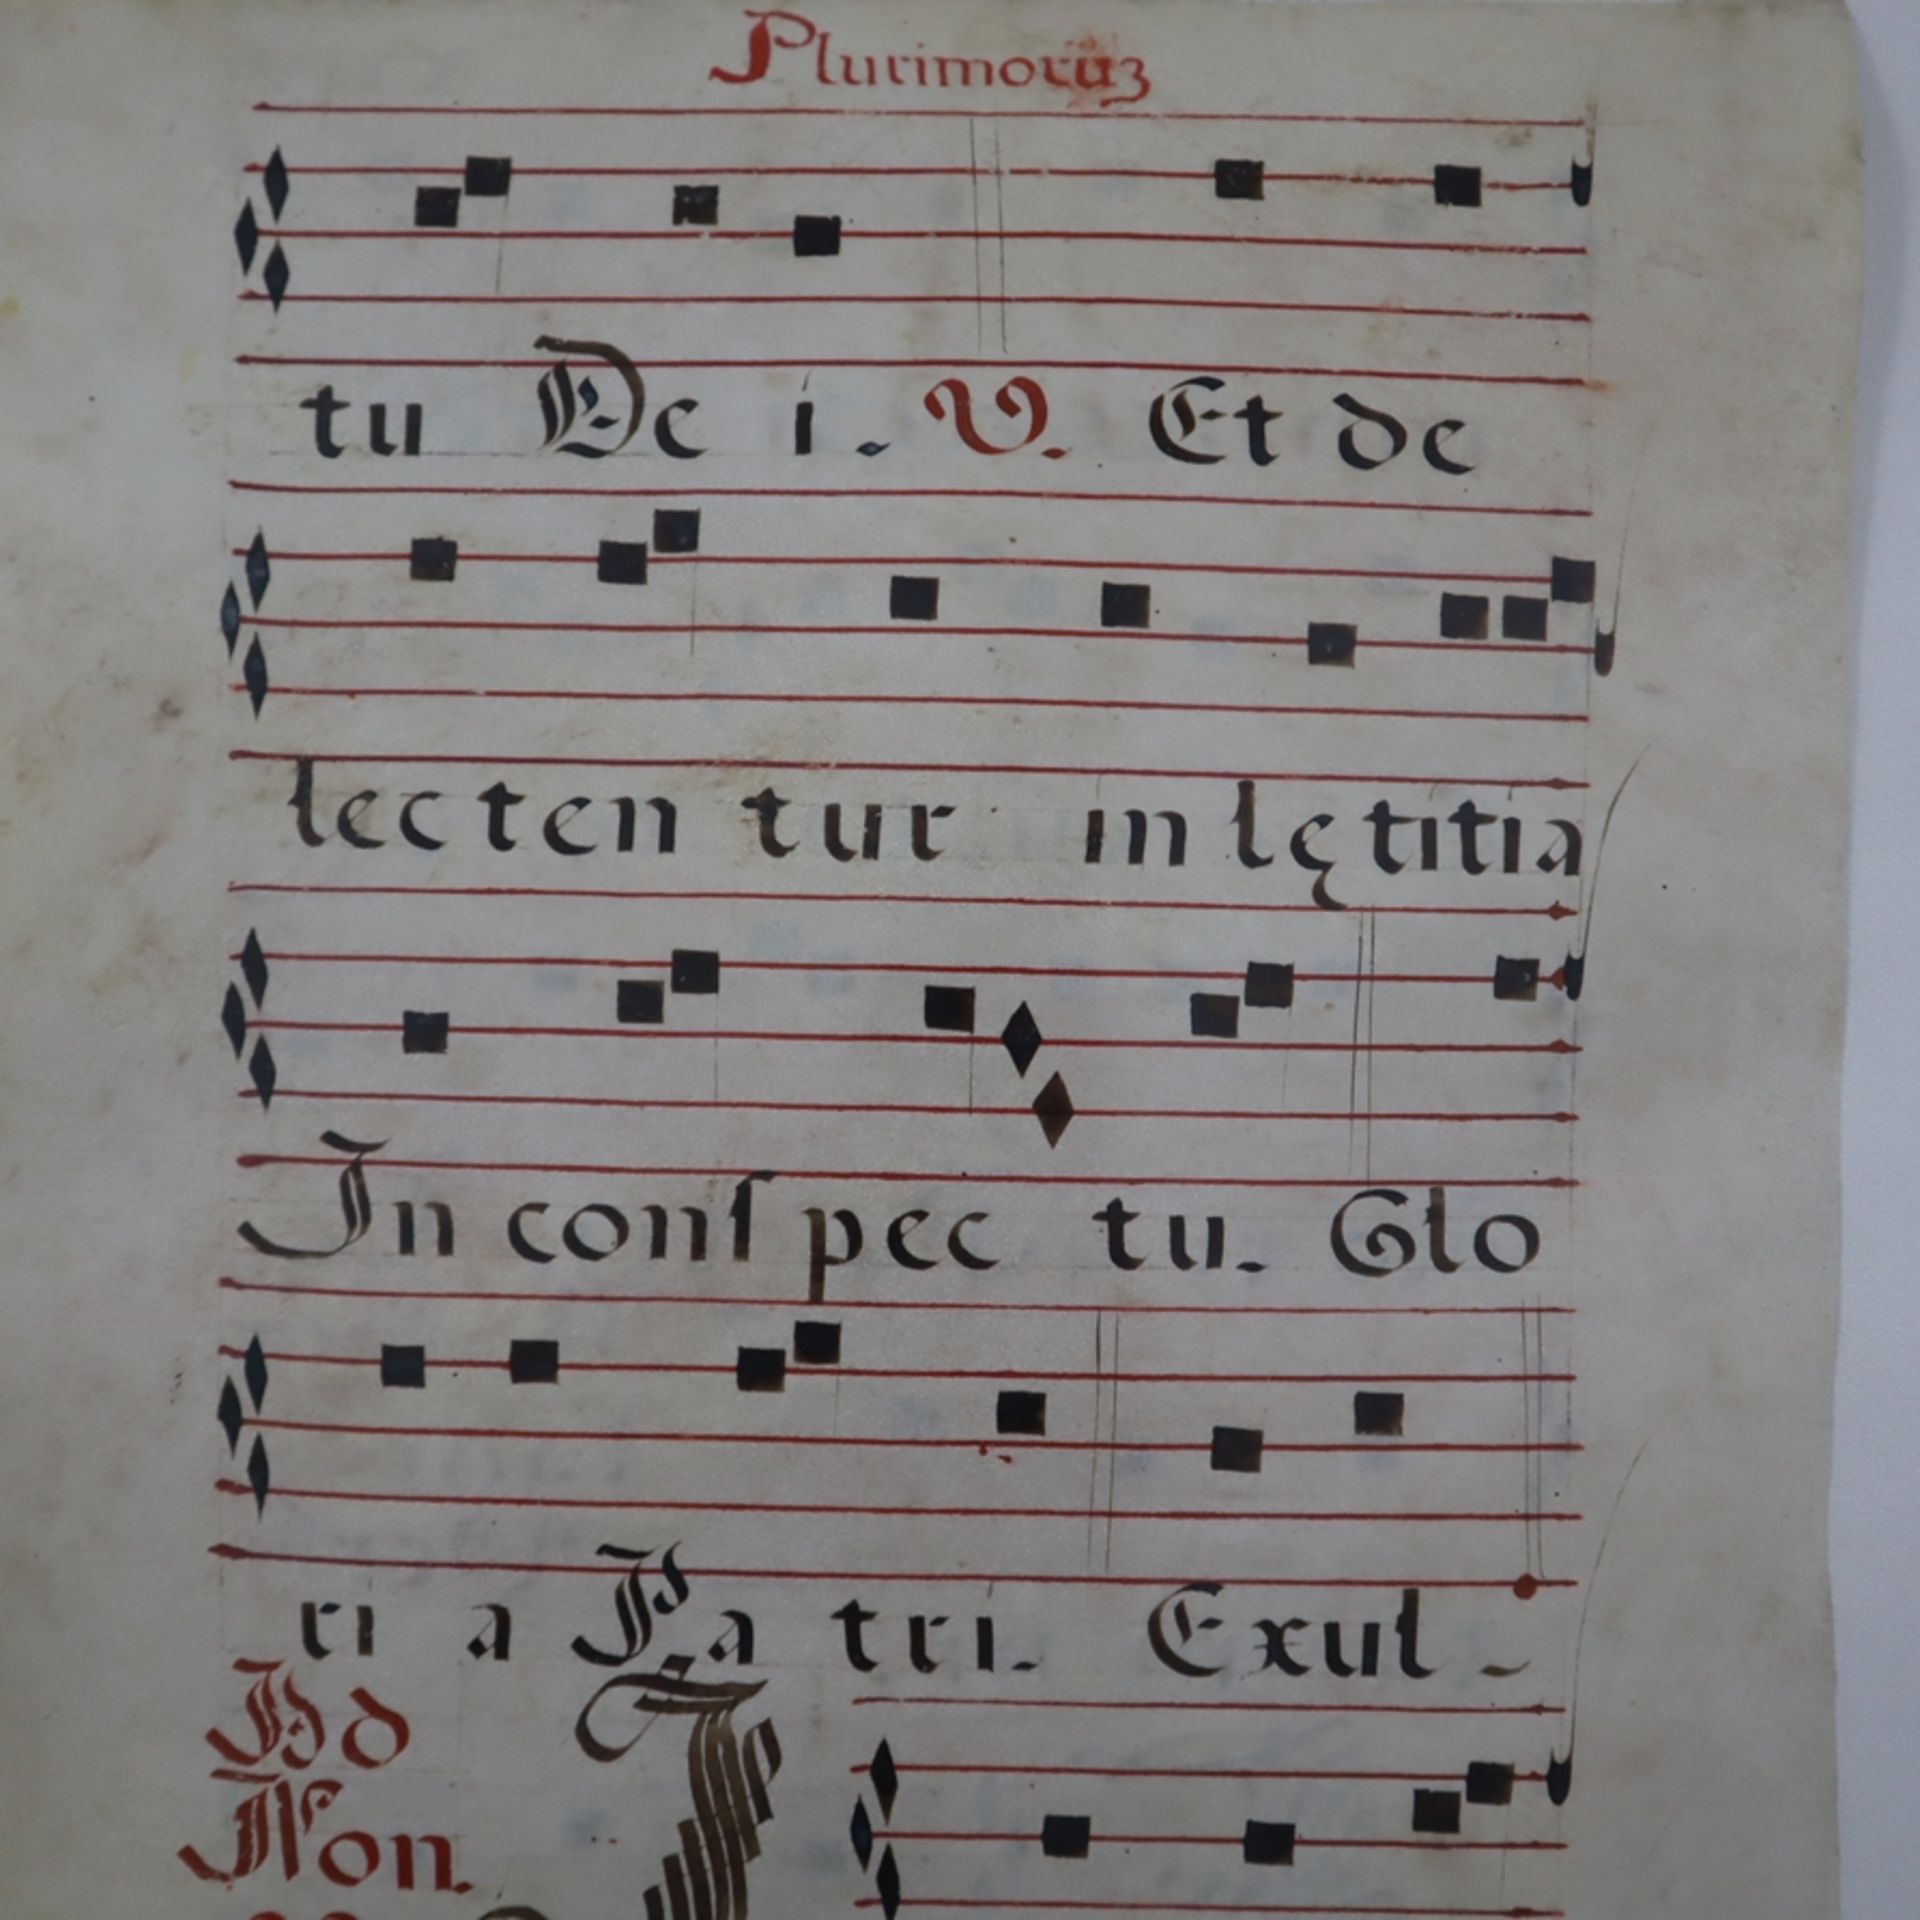 Plurimorūʒ
tu De i. V. Et de
lec ten tur in lętitia
In conſpec tu. Glo
ri a Pa tri. Exul-
Ad
Non.